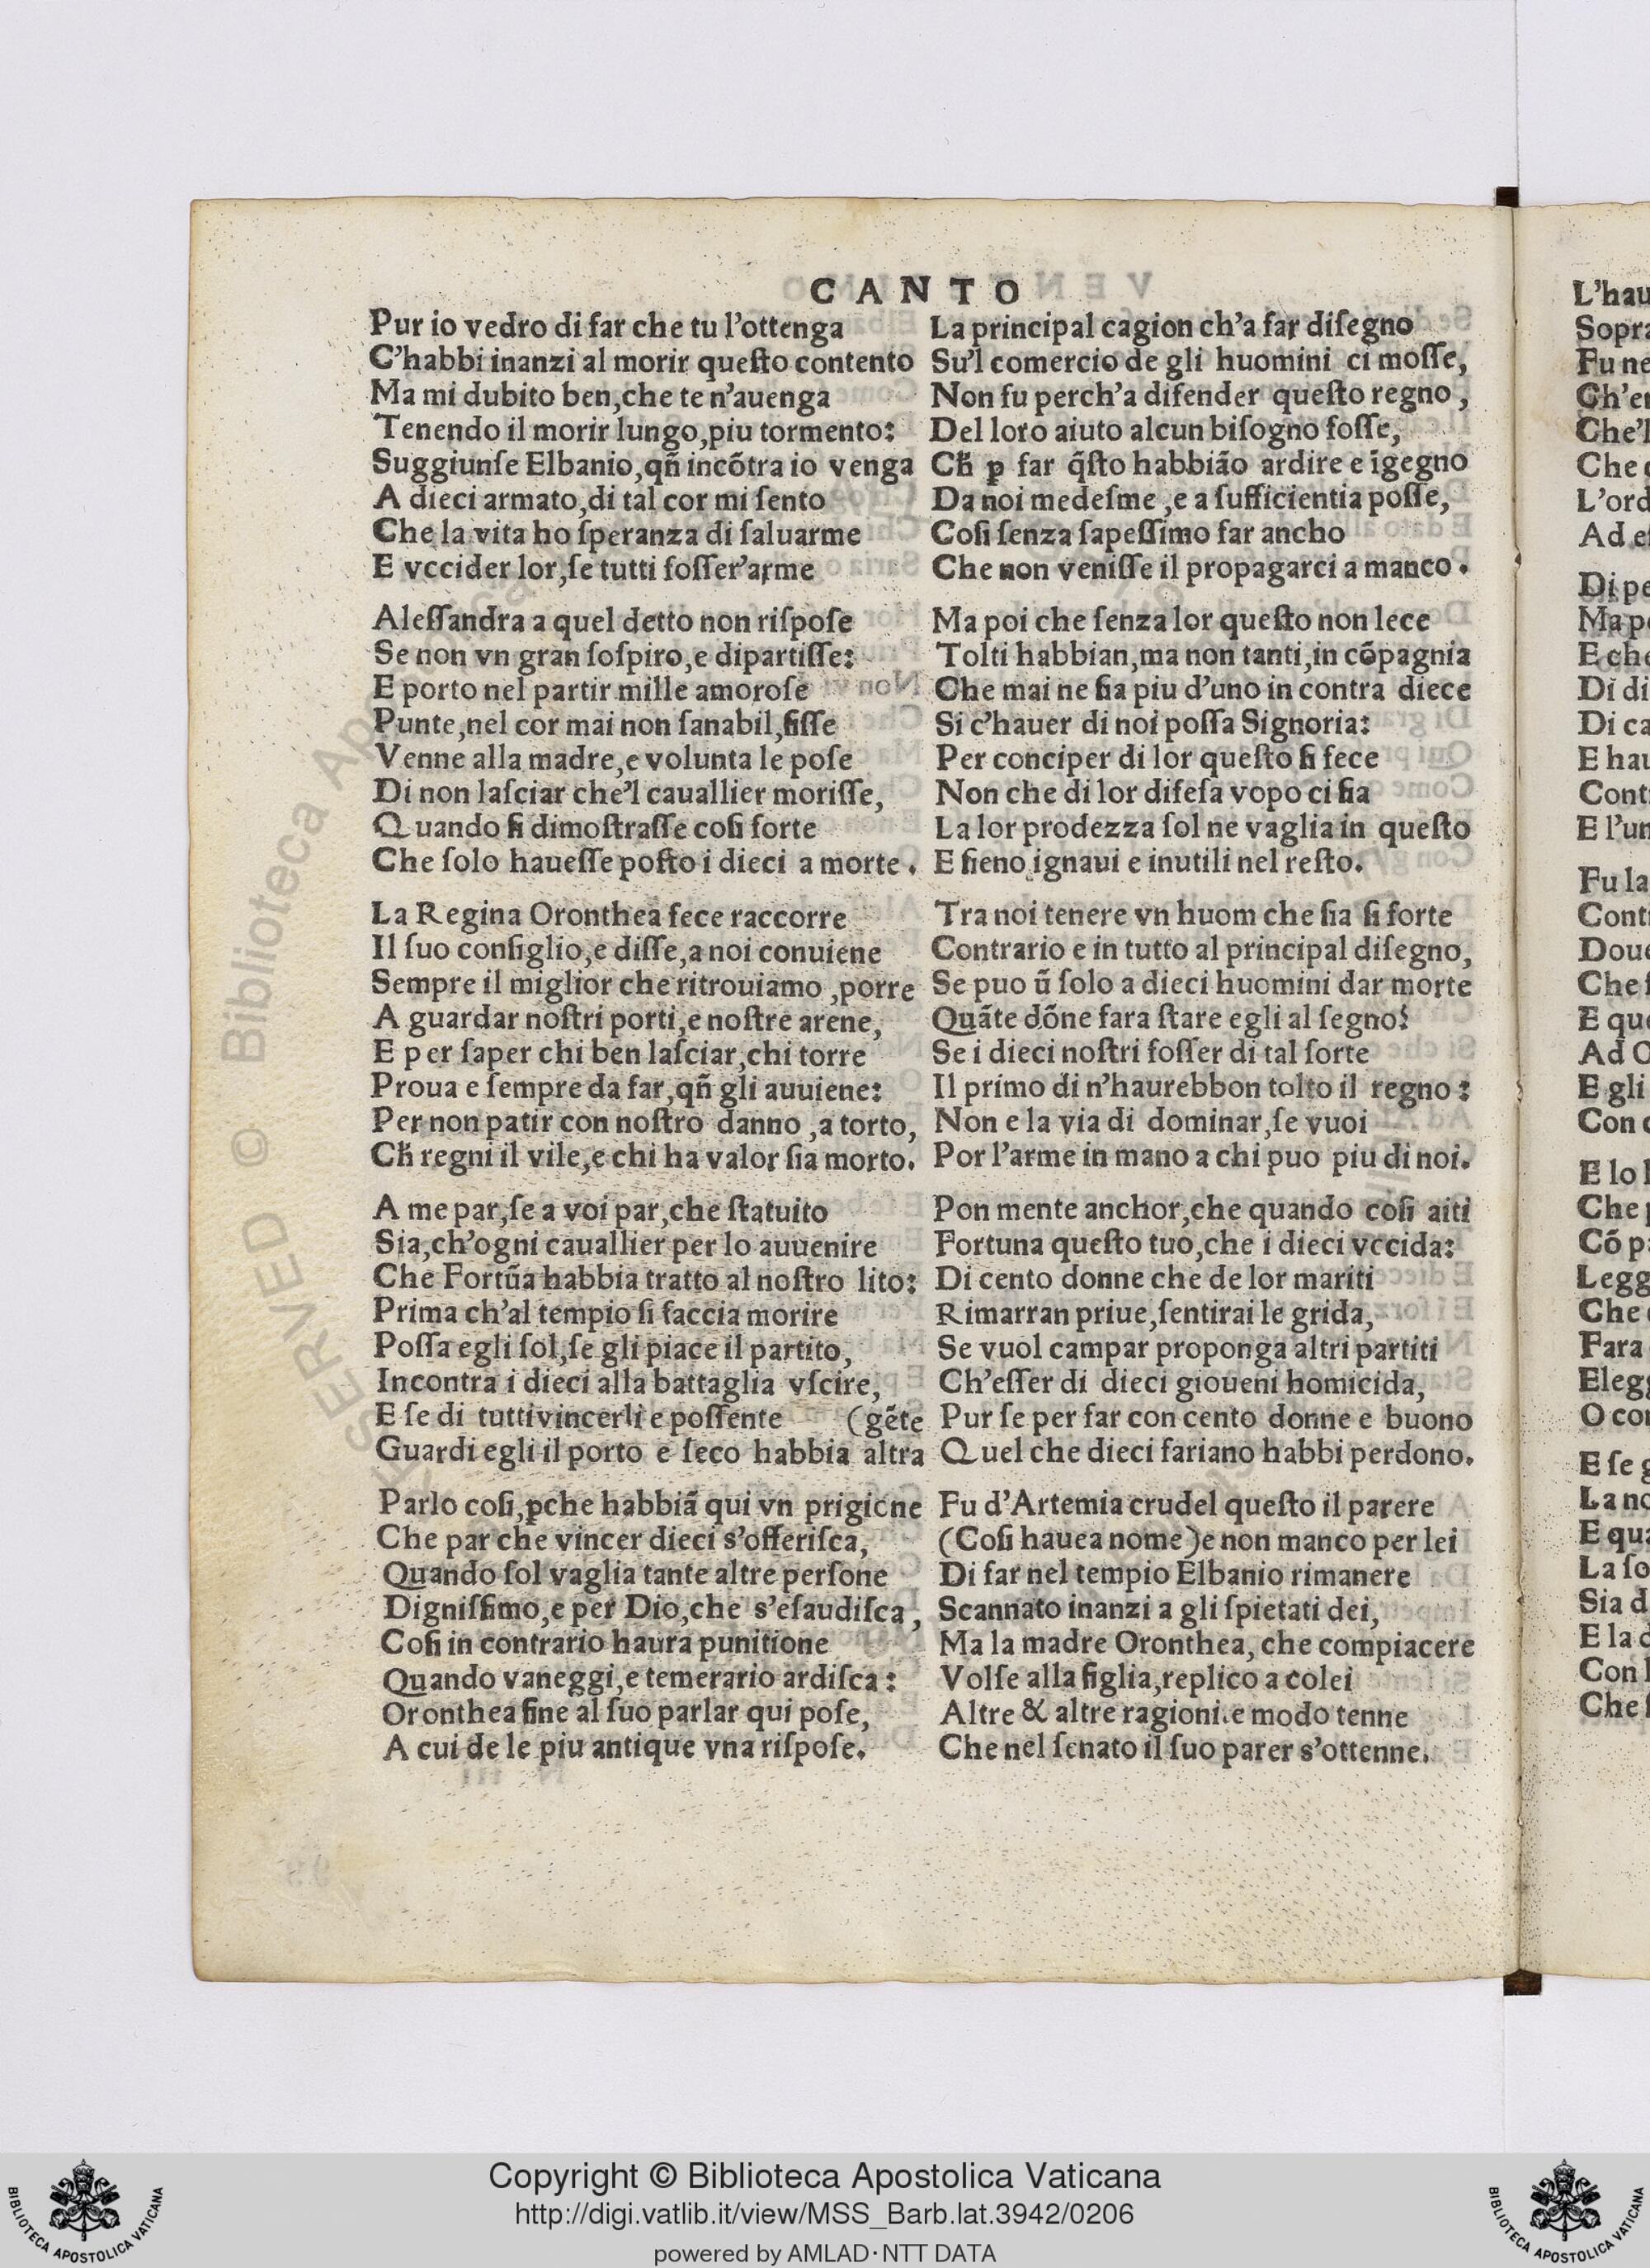 CANTO
Pur io vedro di far che tu l'ottenga
C'habbi inanzi al morir queſto contento
Ma mi dubito ben,che te n'auenga
Tenendo il morir lungo,piu tormento:
Suggiunſe Elbanio,qñ incõtra io venga
A dieci armato,di tal cor mi ſento
Che la vita ho ſperanza di ſaluarme
E vccider lor,ſe tutti foſſer'arme
Aleſſandra a quel detto non riſpoſe
Se non vn gran ſoſpiro,e dipartiſſe:
E porto nel partir mille amoroſe
Punte,nel cor mai non ſanabil,fiſſe
Venne alla madre,e volunta le poſe
Di non laſciar che'l cauallier moriſſe,
Quando ſi dimoſtraſſe coſi forte
Che ſolo haueſſe poſto i dieci a morte.
La Regina Oronthea fece raccorre
Il ſuo conſiglio,e diſſe,a noi conuiene
Sempre il miglior che ritrouiamo,porre
A guardar noſtri porti,e noſtre arene,
E per ſaper chi ben laſciar,chi torre
Proua e ſempre da far,qñ gli auuiene:
Per non patir con noſtro danno,a torto,
Cħ regni il vile,e chi ha valor ſia morto.
A me par,ſe a voi par,che ſtatuito
Sia,ch'ogni cauallier per lo auuenire
Che Fortũa habbia tratto al noſtro lito:
Prima ch'al tempio ſi faccia morire
Poſſa egli ſol,ſe gli piace il partito,
Incontra i dieci alla battaglia vſcire,
E ſe di tutti vincerli e poſſente (gẽte
Guardi egli il porto e ſeco habbia altra
Parlo coſi,ꝑche habbiã qui vn prigione
Che par che vincer dieci s'offeriſca,
Quando ſol vaglia tante altre perſone
Digniſſimo,e per Dio,che s'eſaudiſca,
Coſi in contrario haura punitione
Quando vaneggi,e temerario ardiſca:
Oronthea fine al ſuo parlar qui poſe,
A cui de le piu antique vna riſpoſe.
La principal cagion ch'a far diſegno
Su'l comercio de gli huomini ci moſſe,
Non fu perch'a difender queſto regno,
Del loro aiuto alcun biſogno foſſe,
Cħ ꝑ far q̃ſto habbiāo ardire e īgegno
Da noi medeſme,e a ſufficientia poſſe,
Coſi ſenza ſapeſſimo far ancho
Che non veniſſe il propagarci a manco.
Ma poi che ſenza lor queſto non lece
Tolti habbian,ma non tanti,in cõpagnia
Che mai ne ſia piu d'uno in contra diece
Si c'hauer di noi poſſa Signoria:
Per conciper di lor queſto ſi fece
Non che di lor difeſa vopo ci ſia
La lor prodezza ſol ne vaglia in queſto
E ſieno ignaui e inutili nel reſto.
Tra noi tenere vn huom che ſia ſi forte
Contrario e in tutto al principal diſegno,
Se puo ũ ſolo a dieci huomini dar morte
Quãte dõne fara ſtare egli al ſegno?
Se i dieci noſtri foſſer di tal ſorte
Il primo di n'haurebbon tolto il regno:
Non e la via di dominar,ſe vuoi
Por l'arme in mano a chi puo piu di noi.
Pon mente anchor,che quando coſi aiti
Fortuna queſto tuo,che i dieci vccida:
Di cento donne che de lor mariti
Rimarran priue,ſentirai le grida,
Se vuol campar proponga altri partiti
Ch'eſſer di dieci gioueni homicida,
Pur ſe per far con cento donne e buono
Quel che dieci fariano habbi perdono.
Fu d'Artemia crudel queſto il parere
(Coſi hauea nome)e non manco per lei
Di far nel tempio Elbanio rimanere
Scannato inanzi a gli ſpietati dei,
Ma la madre Oronthea, che compiacere
Volſe alla figlia,replico a colei
Altre & altre ragioni.e modo tenne
Che nel ſenato il ſuo parer s'ottenne.
L'hau
Sopra
Fu ne
Ch'er
Che'l
Che
L'ord
Ad e
Di pe
Ma p
E che
Di di
Di ca
E hau
Cont
E l'un
Fu la
Cont
Doue
Che
E que
Ad O
E gli
Con
E lo
Che
Cõ p
Legg
Che
Fara
Eleg
O co
E ſe
La no
E qua
La ſo
Sia d
E la
Con
Che
© Biblioteca Apo
Copyright © Biblioteca Apostolica Vaticana
http://digi.vatlib.it/view/MSS_Barb.lat.3942/0206
powered by AMLAD·NTT DATA
BIBLIOTECA APOSTOLICA VATICANA
BIBLIOTECA APOSTOLICA VATICANA